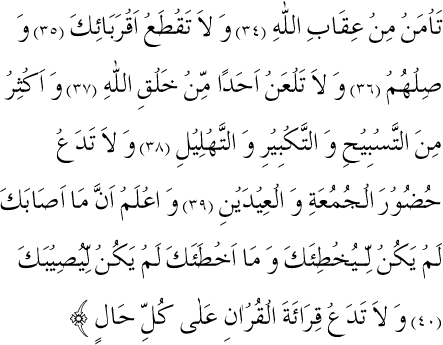 تَأْمَنَ مِنْ عِقَابِ اللّٰهِ (٣٤) وَ لَا تَقْطَعَ اَقْرَبَائِكَ (٣٥) وَ
صِلْهُمْ (٣٦) وَ لَا تَلْعَنْ اَحَدًا مِّنْ خَلْقِ اللّٰهِ (٣٧) وَ اَكْثِرْ
مِنَ التَّسْبِيْحِ وَ التَّكْبِيْرِ وَ التَّهْلِيْلِ (٣٨) وَ لَا تَدَعْ
حُضُوْرَ الْجُمُعَةِ وَ الْعِيْدَيْنِ (٣٩) وَ اعْلَمْ اَنَّ مَا اَصَابَكَ
لَمْ يَكُنْ لِّيُخْطِئَكَ وَ مَا اَخْطَئَكَ لَمْ يَكُنْ لِّيُصِيْبَكَ
(٤٠) وَ لَا تَدَعْ قِرَائَةَ الْقُرْاٰنِ عَلٰى كُلِّ حَالٍ ﴾